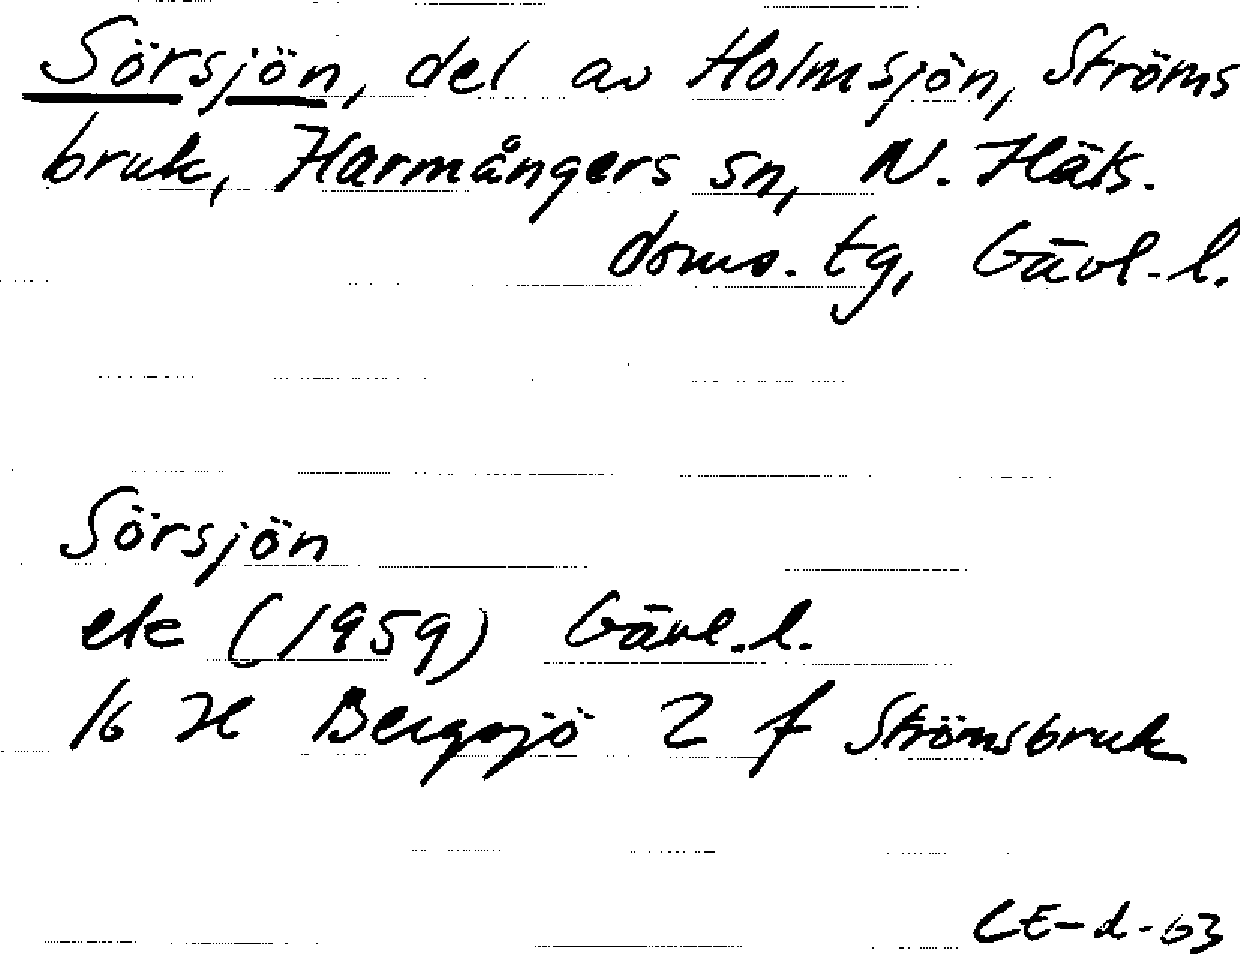 Sörsjön, del av Holmsjön, Ströms
bruk, Harmångers sn, N. Häls.
doms. tg, Gävl. l.
Sörsjön
ek (1959) Gävl. l.
16 H Bergsjö 2 f Strömsbruk
CE-d-63